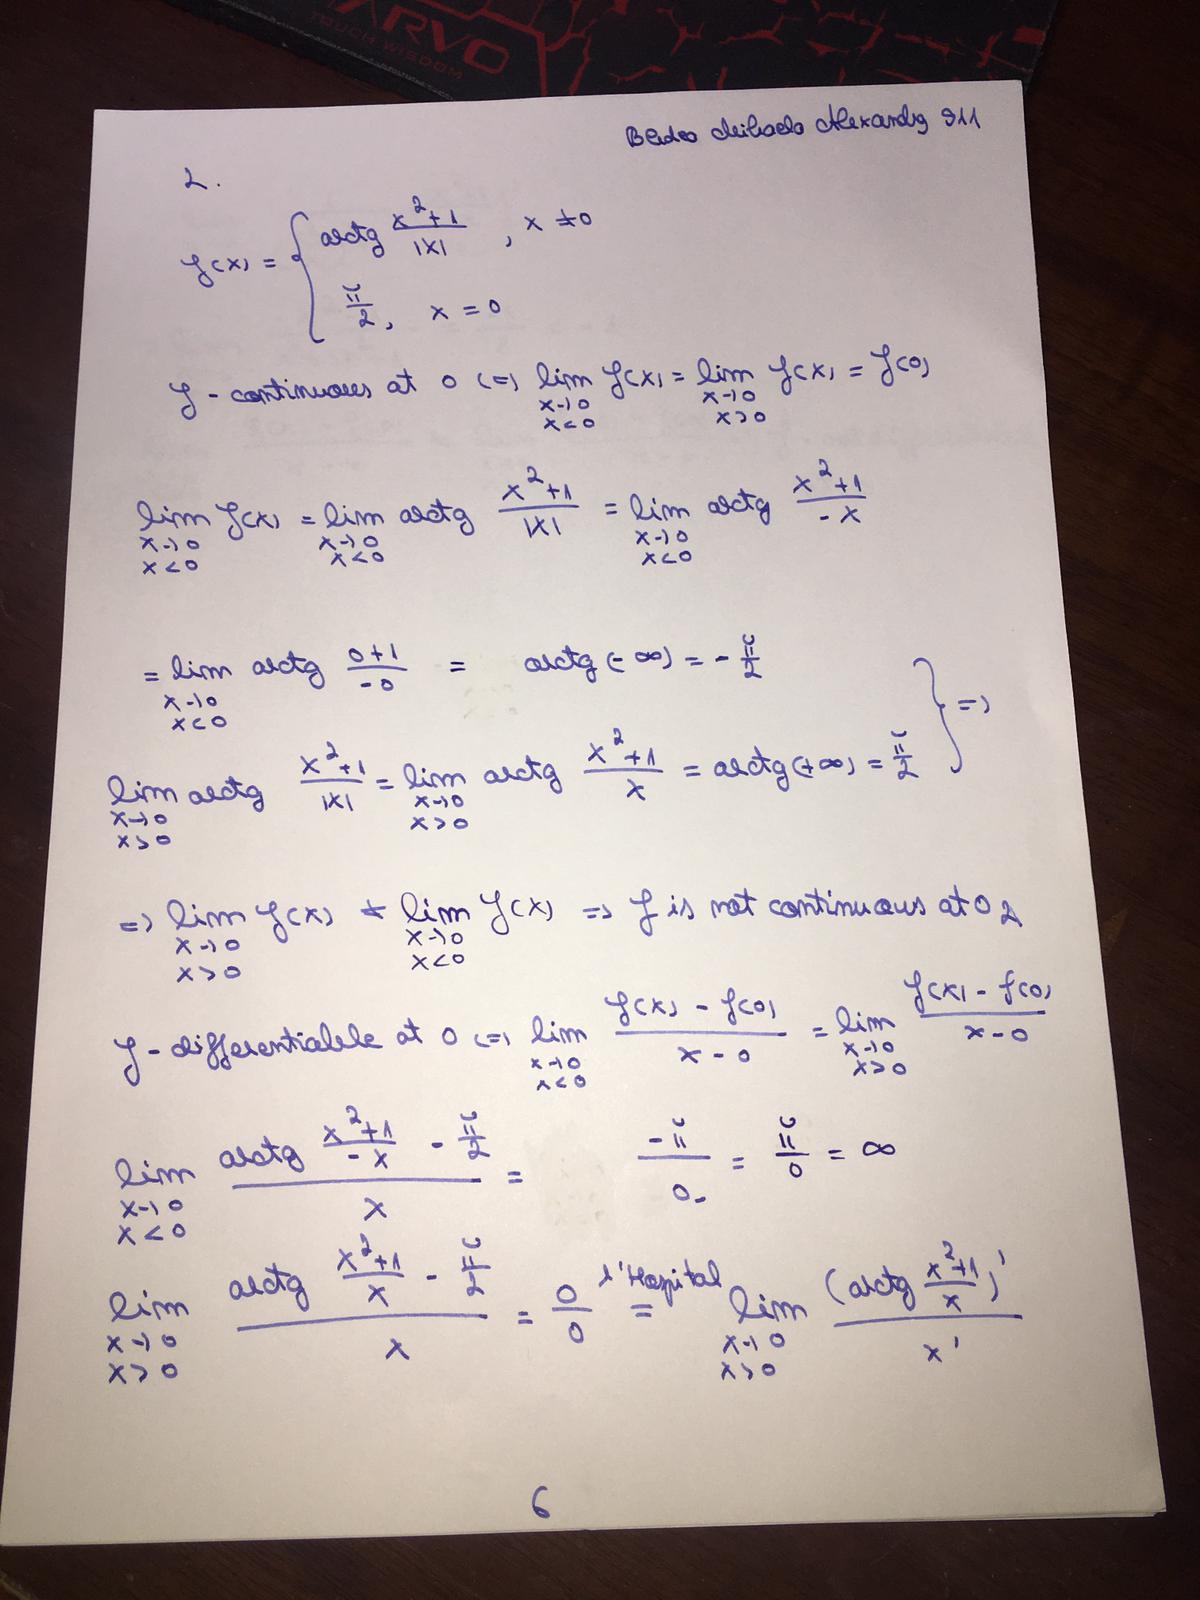 ARVO
TOUCH WISDOM
Alexandra 911
2.
f(x) = { arctg (x²+1)/|x| , x ≠ 0
π/2 , x = 0
f - continuous at 0 <=> lim x→0 x<0 f(x) = lim x→0 x>0 f(x) = f(0)
lim x→0 x<0 f(x) = lim x→0 x<0 arctg (x²+1)/|x| = lim x→0 x<0 arctg (x²+1)/-x
= lim x→0 x<0 arctg (0+1)/-0 = arctg(-∞) = -π/2
lim x→0 x>0 arctg (x²+1)/|x| = lim x→0 x>0 arctg (x²+1)/x = arctg(+∞) = π/2 } =>
=> lim x→0 x>0 f(x) ≠ lim x→0 x<0 f(x) => f is not continuous at 0 2
f - differentiable at 0 <=> lim x→0 x<0 (f(x) - f(0))/(x - 0) = lim x→0 x>0 (f(x) - f(0))/(x - 0)
lim x→0 x<0 (arctg (x²+1)/-x - π/2)/x = -π/0- = π/0 = ∞
lim x→0 x>0 (arctg (x²+1)/x - π/2)/x = 0/0 l'Hospital = lim x→0 x>0 (arctg (x²+1)/x)'/x'
6